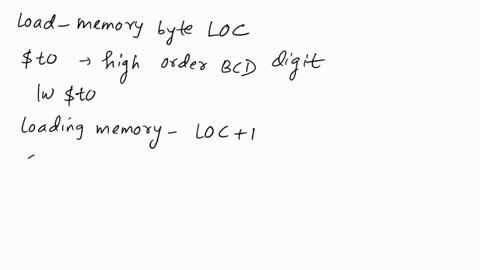 Load - memory byte LOC
$t0 → high order BCD digit
lw $t0
Loading memory - LOC+1